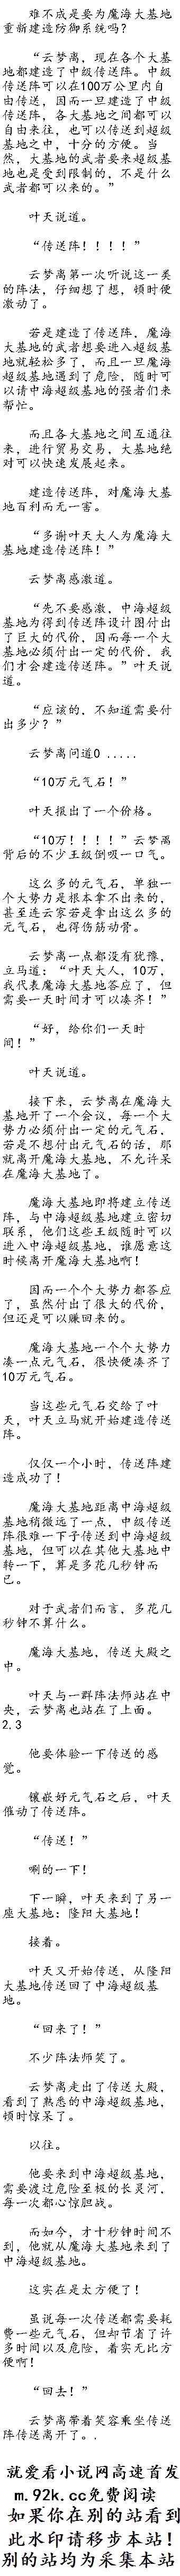 难不成是要为魔海大基地
重新建造防御系统吗？
“云梦离，现在各个大基
地都建造了中级传送阵。中级
传送阵可以在100万公里内自
由传送，因而一旦建造了中级
传送阵，各大基地之间都可以
自由来往，也可以传送到超级
基地之中，十分的方便。当
然，大基地的武者要来超级基
地也是受到限制的，不是什么
武者都可以来的。”
叶天说道。
“传送阵！！！！”
云梦离第一次听说这一类
的阵法，仔细想了想，顿时便
激动了。
若是建造了传送阵，魔海
大基地的武者想要进入超级基
地就轻松多了，而且一旦魔海
超级基地遇到了危险，随时可
以请中海超级基地的强者们来
帮忙。
而且各大基地之间互通往
来，进行贸易交易，大基地绝
对可以快速发展起来。
建造传送阵，对魔海大基
地百利而无一害。
“多谢叶天大人为魔海大
基地建造传送阵！”
云梦离感激道。
“先不要感激，中海超级
基地为得到传送阵设计图付出
了巨大的代价，因而每一个大
基地必须付出一定的代价，我
们才会建造传送阵。”叶天说
道。
“应该的，不知道需要付
出多少？”
云梦离问道0 .....
“10万元气石！”
叶天报出了一个价格。
“10万！！！！”云梦离
背后的不少王级倒吸一口气。
这么多的元气石，单独一
个大势力是根本拿不出来的，
甚至连云家若是拿出这么多的
元气石，也得伤筋动骨。
云梦离一点都没有犹豫，
立马道：“叶天大人，10万，
我代表魔海大基地答应了，但
需要一天时间才可以凑齐！”
“好，给你们一天时
间！”
叶天说道。
接下来，云梦离在魔海大
基地开了一个会议，每一个大
势力必须付出一定的元气石，
若是不想付出元气石的话，那
就离开魔海大基地，不允许呆
在魔海大基地了。
魔海大基地即将建立传送
阵，与中海超级基地建立密切
联系，他们这些王级随时可以
进入中海超级基地，谁愿意这
时候离开魔海大基地啊！
因而一个个大势力都答应
了，虽然付出了很大的代价，
但还是可以赚回来的。
魔海大基地一个个大势力
凑一点元气石，很快便凑齐了
10万元气石。
当这些元气石交给了叶
天，叶天立马就开始建造传送
阵。
仅仅一个小时，传送阵建
造成功了！
魔海大基地距离中海超级
基地稍微远了一点，中级传送
阵很难一下子传送到中海超级
基地，但可以在其他大基地中
转一下，算是多花几秒钟而
已。
对于武者们而言，多花几
秒钟不算什么。
魔海大基地，传送大殿之
中。
叶天与一群阵法师站在中
央，云梦离也站在了上面。
2.3
他要体验一下传送的感
觉。
镶嵌好元气石之后，叶天
催动了传送阵。
“传送！”
唰的一下！
下一瞬，叶天来到了另一
座大基地：隆阳大基地！
接着。
叶天又开始传送，从隆阳
大基地传送回了中海超级基
地。
“回来了！”
不少阵法师笑了。
云梦离走出了传送大殿，
看到了熟悉的中海超级基地，
顿时惊呆了。
以往。
他要来到中海超级基地，
需要渡过危险至极的长灵河，
每一次都心惊胆战。
而如今，才十秒钟时间不
到，他就从魔海大基地来到了
中海超级基地。
这实在是太方便了！
虽说每一次传送都需要耗
费一些元气石，但却节省了许
多时间以及危险，着实无比方
便啊！
“回去！”
云梦离带着笑容乘坐传送
阵传送离开了。.
就爱看小说网高速首发
m.92k.cc免费阅读
如果你在别的站看到
此水印请移步本站！
别的站均为采集本站